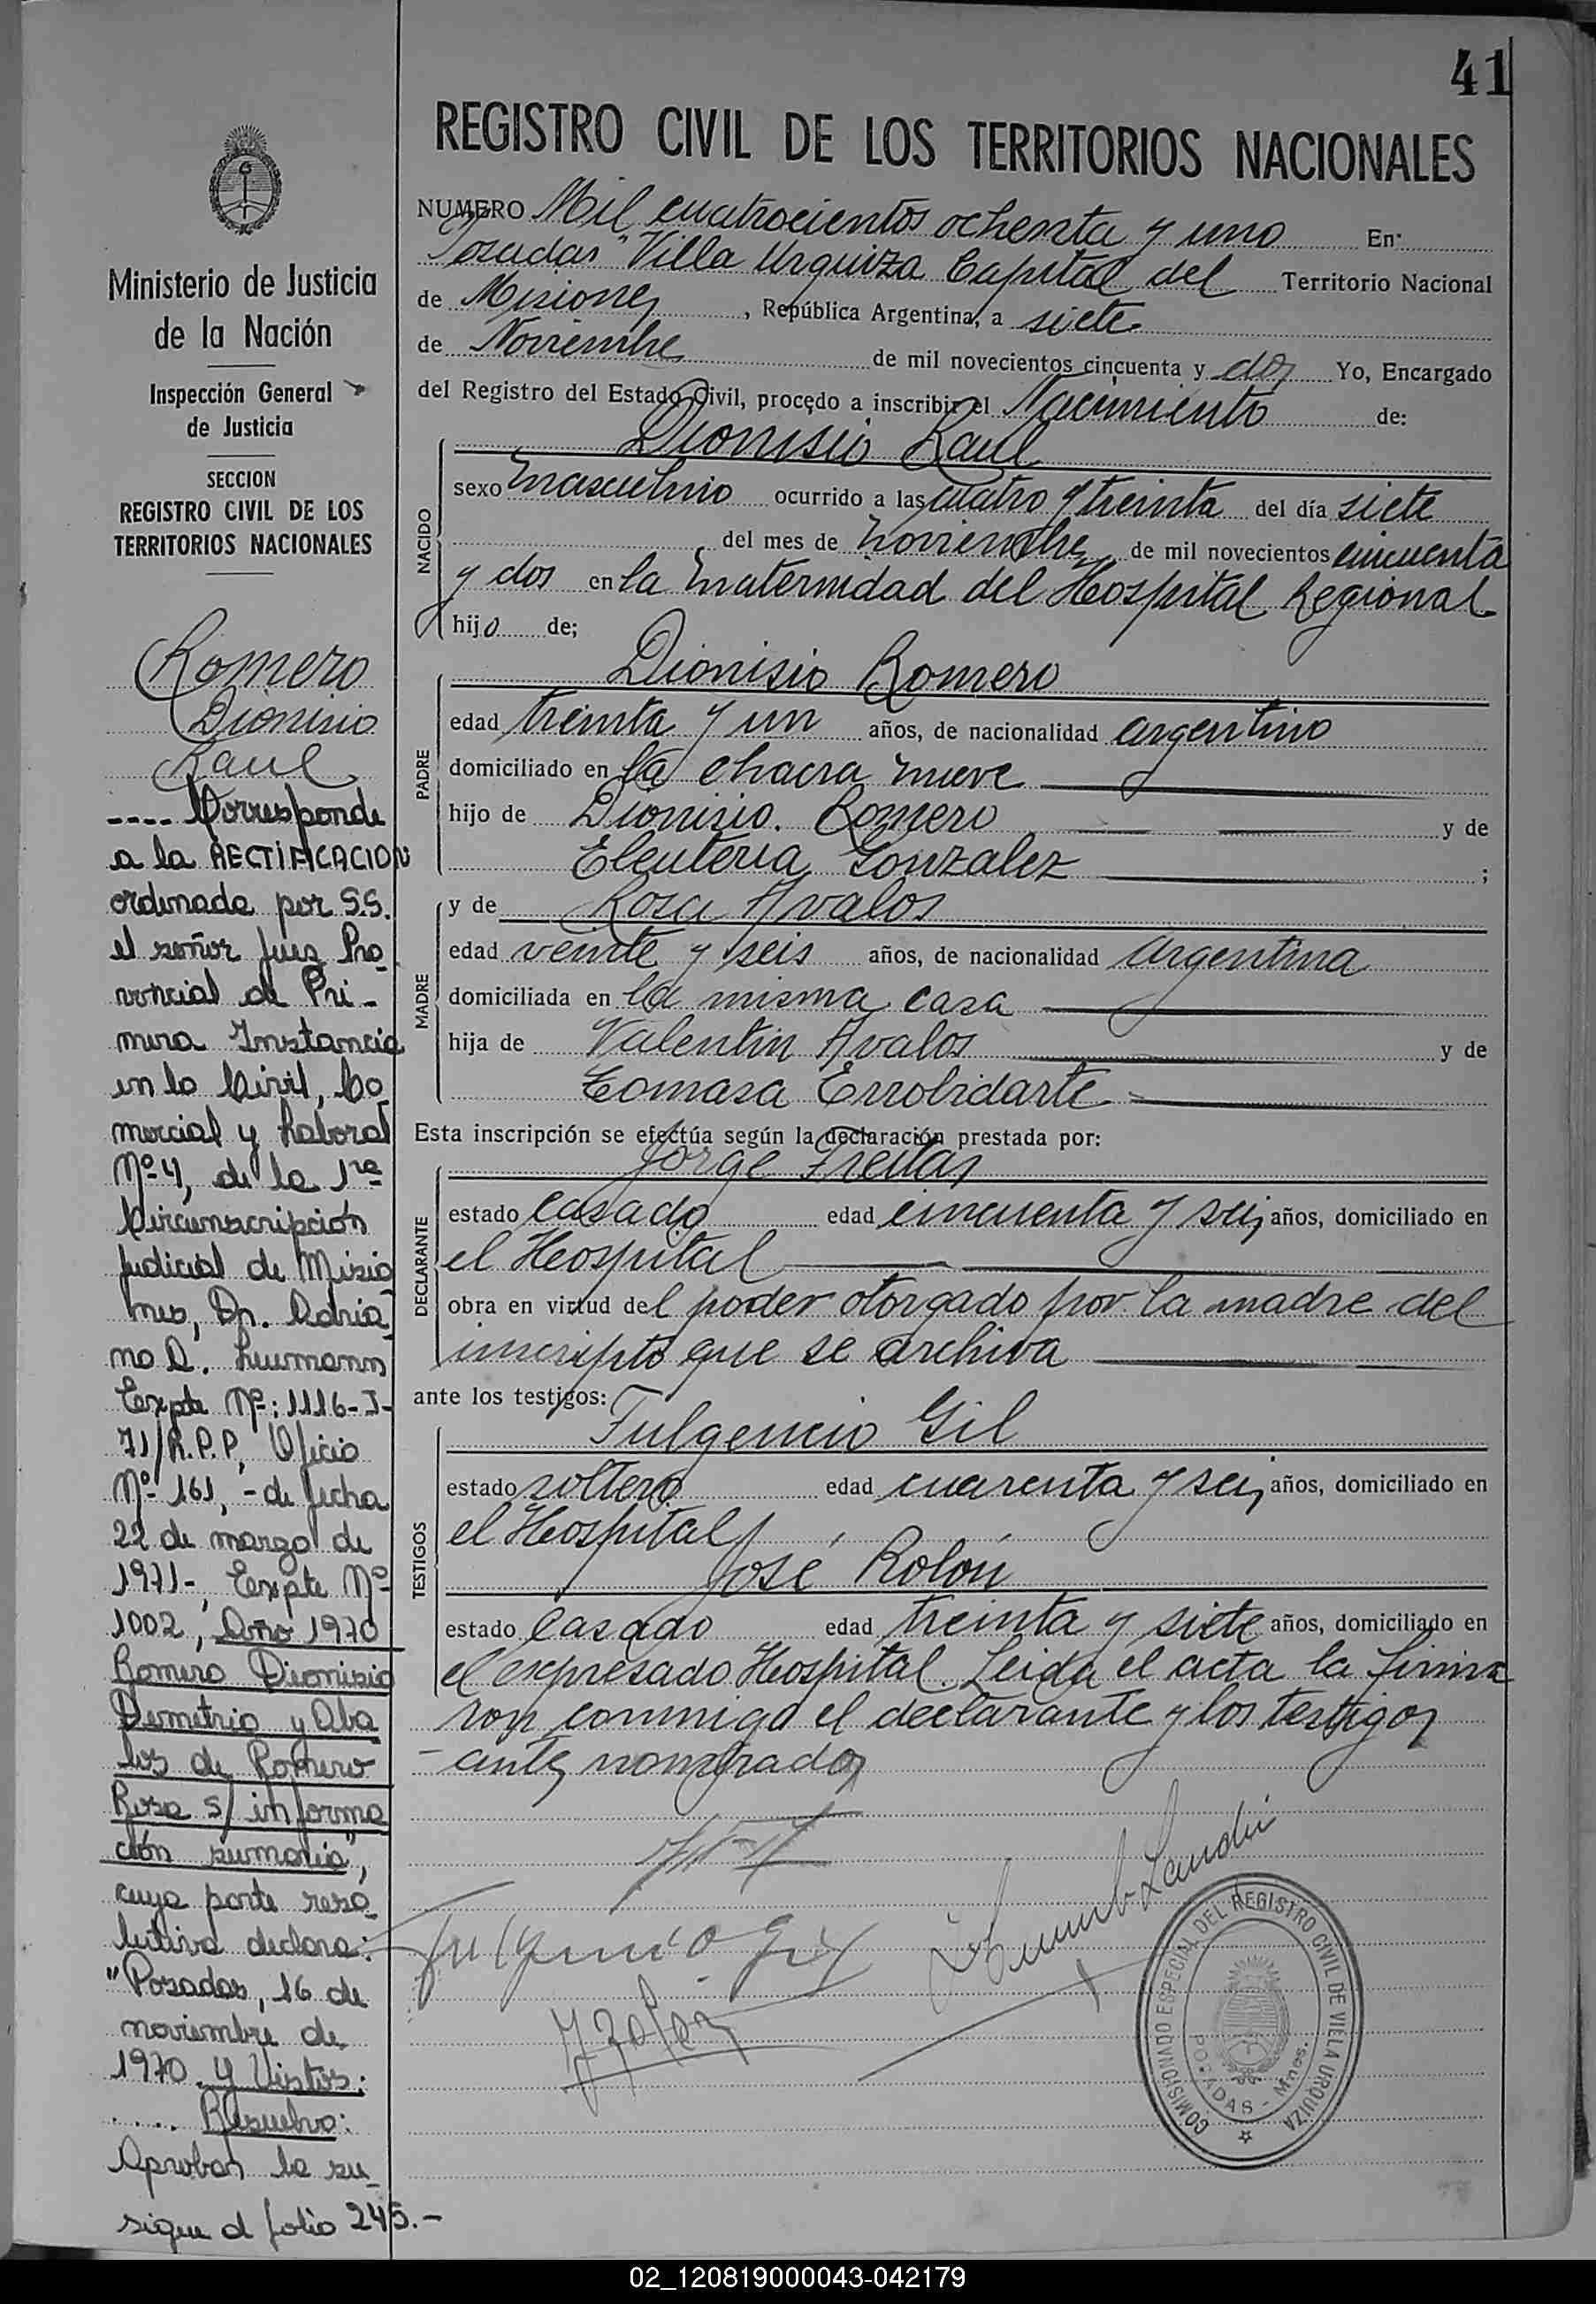 41
REGISTRO CIVIL DE LOS TERRITORIOS NACIONALES
Ministerio de Justicia
de la Nación
Inspección General
de Justicia
SECCION
REGISTRO CIVIL DE LOS
TERRITORIOS NACIONALES
Romero
Dionisio
Raul
---- Corresponde
a la RECTIFICACION
ordenada por S.S.
el señor Juez Pro-
vincial de Pri-
mera Instancia
en lo Civil, Co-
mercial y Laboral
Nº 4, de la 1ra
Circunscripción
Judicial de Misio-
nes, Dr. Adria-
no D.
Expte Nº: 1116-J-
71/R.P.P, Oficio
Nº 161, - de fecha
22 de marzo de
1971-, Expte Nº
1002, Año 1970
Romero Dionisio
Demetrio y Aba
los de Romero
Rosa s/ informa
ción sumaria",
cuya parte reso-
lutiva declara:
"Posadas, 16 de
noviembre de
1970. Y Vistos:
..... Resuelvo:
Aprobar la su-
sigue al folio 245.-
NUMERO Mil cuatrocientos ochenta y uno En:
Posadas "Villa Urquiza Capital del Territorio Nacional
de Misiones, República Argentina, a siete
de Noviembre de mil novecientos cincuenta y dos Yo, Encargado
del Registro del Estado Civil, procedo a inscribir el Nacimiento de:
Dionisio Raul
NACIDO
sexo masculino ocurrido a las cuatro y treinta del día siete
, del mes de noviembre de mil novecientos cincuenta
y dos en la maternidad del Hospital Regional
hijo de;
Dionisio Romero
PADRE
edad treinta y un años, de nacionalidad argentino
domiciliado en la chacra nueve
hijo de Dionisio. Romero y de
Eleuteria Gonzalez ;
y de Rosa Avalos
MADRE
edad veinte y seis años, de nacionalidad argentina
domiciliada en la misma casa
hija de Valentin Avalos y de
Tomasa Errobidarte
Esta inscripción se efectúa según la declaración prestada por:
Jorge Freitas
DECLARANTE
estado casado edad cincuenta y seis años, domiciliado en
el Hospital
obra en virtud del poder otorgado por la madre del
inscripto que se archiva
ante los testigos:
Fulgencio Gil
TESTIGOS
estado soltero edad cuarenta y seis años, domiciliado en
el Hospital
José Rolón
estado casado edad treinta y siete años, domiciliado en
el expresado Hospital. Leida el acta la firma
ron conmigo el declarante y los testigos
antes nombrados
Fulgencio Gil
COMISIONADO ESPECIAL DEL REGISTRO CIVIL DE VILLA URQUIZA
POSADAS - Mnes.
02_120819000043-042179